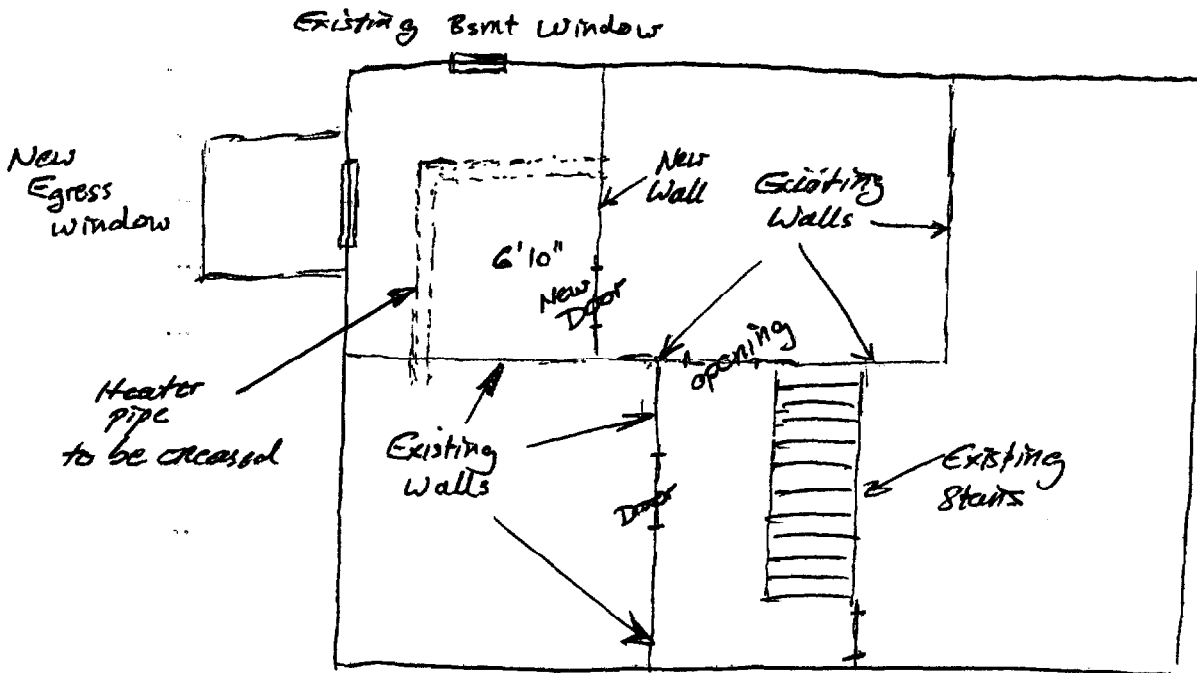 Existing Bsmt Window
New
Egress
window
New
Wall
Existing
Walls
6'10"
New
Door
opening
Heater
pipe
to be encased
Existing
Walls
Door
Existing
Stairs